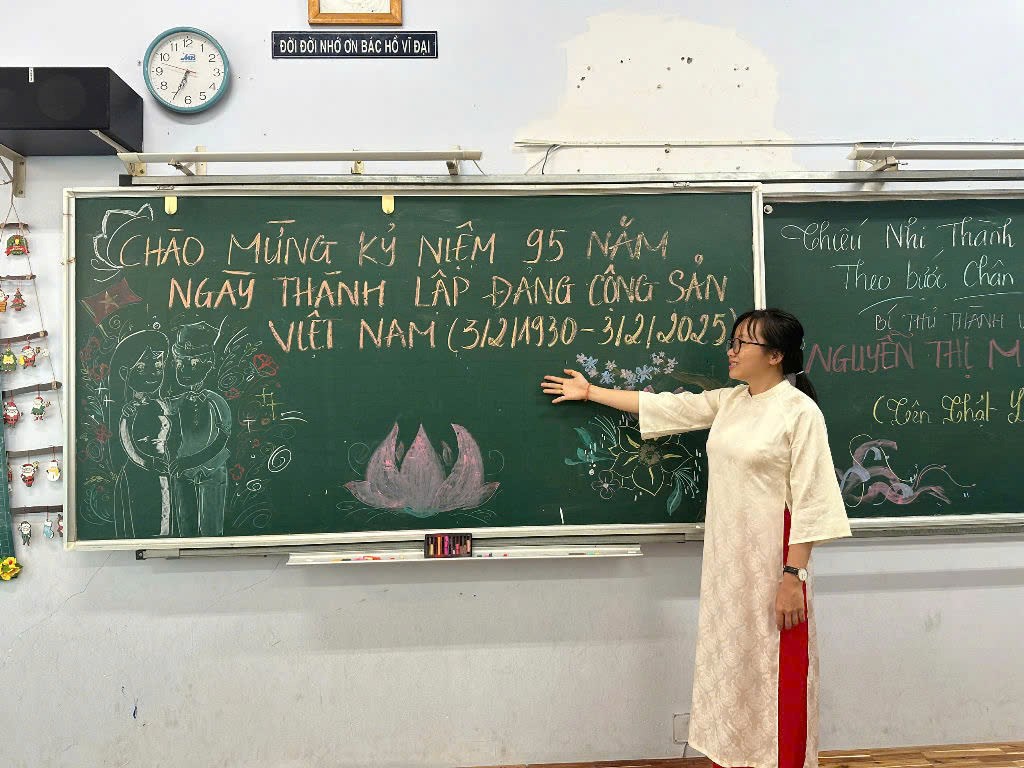 ĐỜI ĐỜI NHỚ ƠN BÁC HỒ VĨ ĐẠI
12
1
2
3
4
5
6
7
8
9
10
11
CHÀO MỪNG KỶ NIỆM 95 NĂM
NGÀY THÀNH LẬP ĐẢNG CỘNG SẢN
VIỆT NAM (3/2/1930 - 3/2/2025)
Thiếu Nhi Thành
Theo bước Chân
BÍ THƯ THÀNH
NGUYỄN THỊ M
(Tên Thật